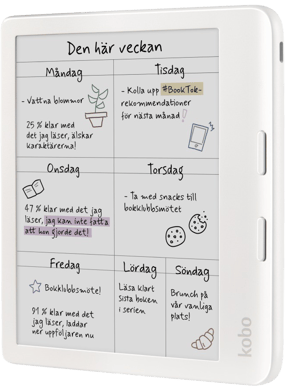 Den här veckan
Måndag
- Vattna blommor
25 % klar med
det jag läser, älskar
karaktärerna!
Tisdag
- Kolla upp #BookTok-
rekommendationer
för nästa månad
Onsdag
47 % klar med det jag
läser, jag kan inte fatta
att hon gjorde det!
Torsdag
- Ta med snacks till
bokklubbsmötet
Fredag
Bokklubbsmöte!
91 % klar med det
jag läser, laddar
ner uppföljaren nu
Lördag
Läsa klart
sista boken
i serien
Söndag
Brunch på
vår vanliga
plats!
kobo